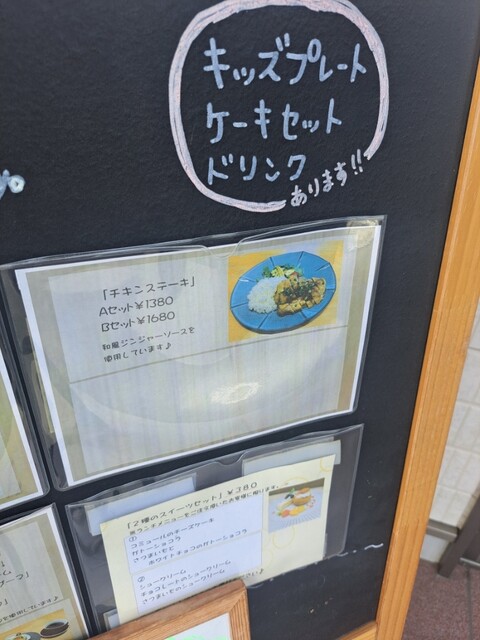 キッズプレート
ケーキセット
ドリンク
あります!!
「チキンステーキ」
Aセット¥1380
Bセット¥1680
和風ジンジャーソースを
使用しています♪
「2種のスイーツセット」¥380
①
コミュールのチーズケーキ
ガトーショコラ
さつまいもと
ホワイトチョコのガトーショコラ
②
シュークリーム
チョコミントのシュークリーム
さつまいものシュークリーム